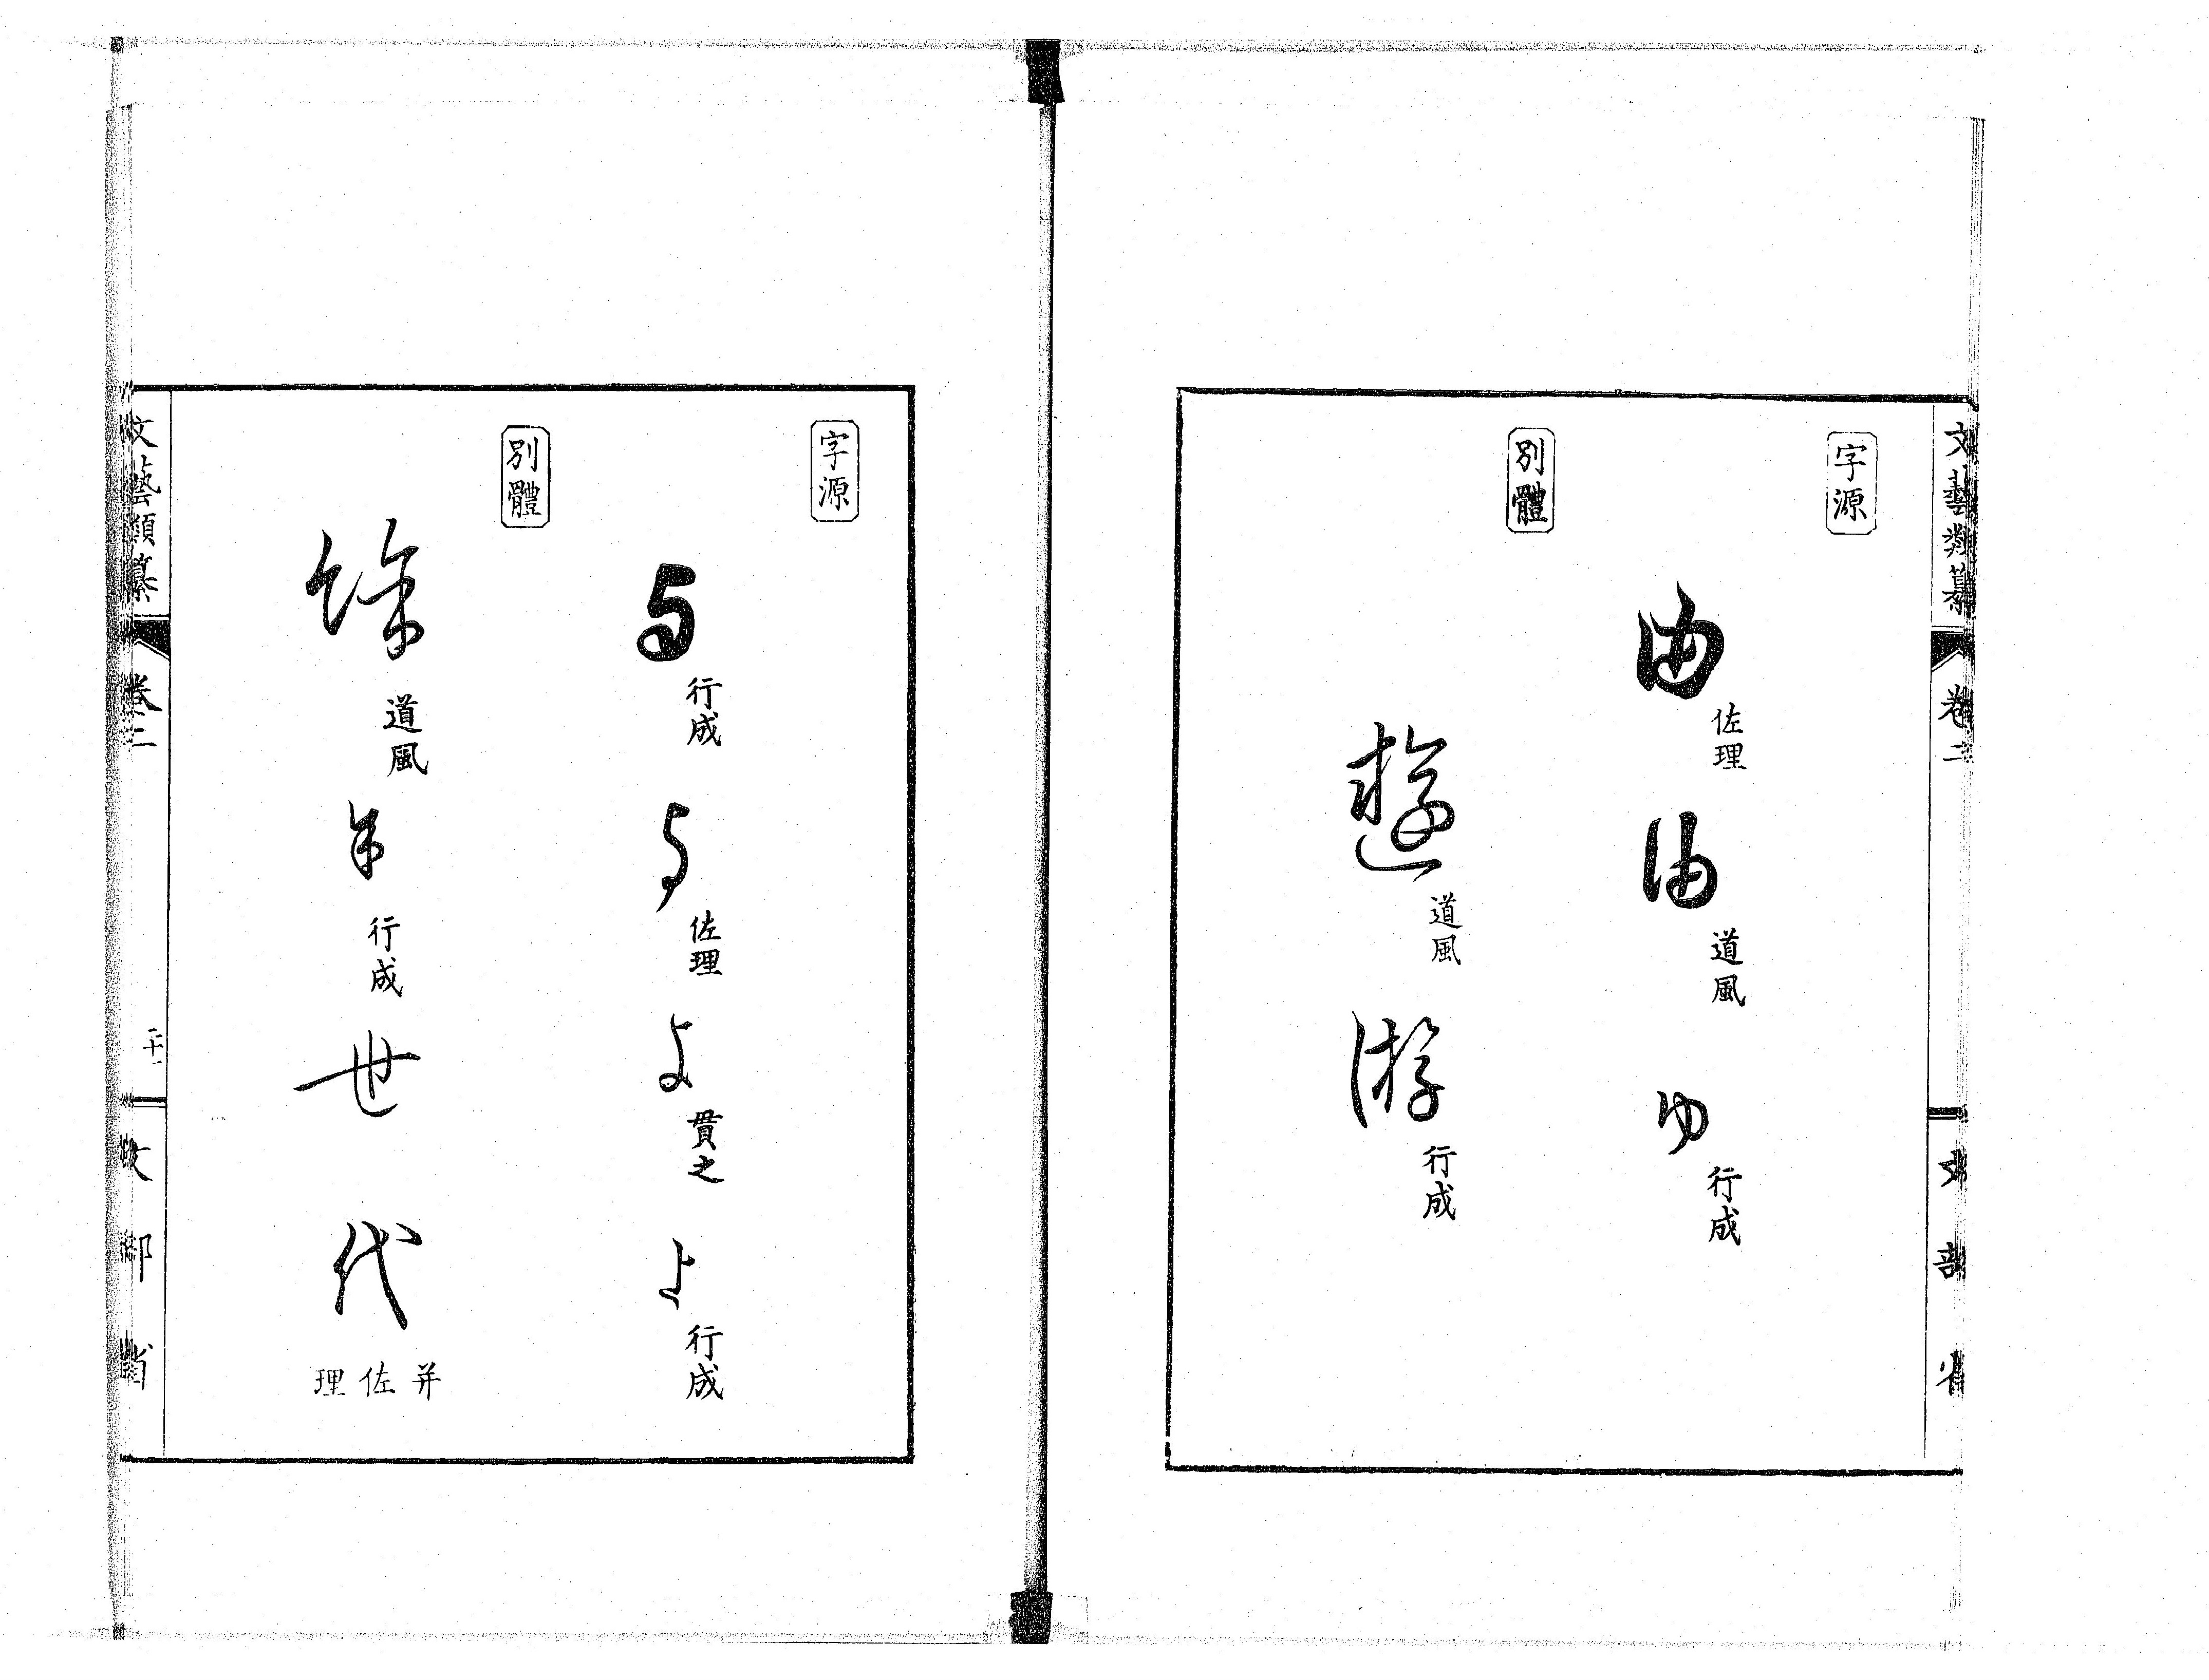 文藝類纂
卷二
文部省
字源
由 佐理 由 道風 ゆ 行成
別體
遊 道風 游 行成
字源
与 行成 与 佐理 よ 貫之 よ 行成
別體
餘 道風 余 行成 世 代 并佐理
文藝類纂
卷二
二十一
文部省